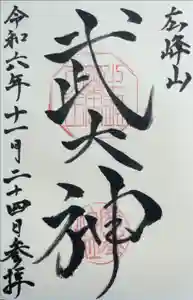 峰山
武大神
令和六年十一月二十四日参拝